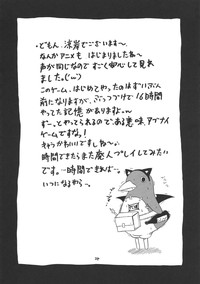 ・どもん、涼岸でございます〜
なんかアニメもはじまりましたね〜
声が同じなのですごく安心して見れ
ました(^ω^)
このゲーム、はじめてやったのはずいぶん
前になりますが、ぶっつづけで16時間
やってた記憶がありますw
ずーっとやってられるので、ある意味、アブナイ
ゲームですな!
キャラかわいいですしね〜。
時間できたらまた廃人プレイしてみたい
です。…時間できれば…。
いつになるやら…